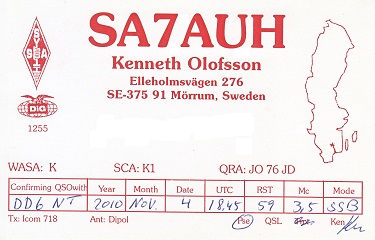 SA7AUH
Kenneth Olofsson
Elleholmsvägen 276
SE-375 91 Mörrum, Sweden
SSA
DIG
1255
WASA: K SCA: K1 QRA: JO 76 JD
Confirming QSO with Year Month Date UTC RST Mc Mode
DD6 NT 2010 NOV. 4 18,45 59 3,5 SSB
Tx: Icom 718 Ant: Dipol Pse QSL Ken